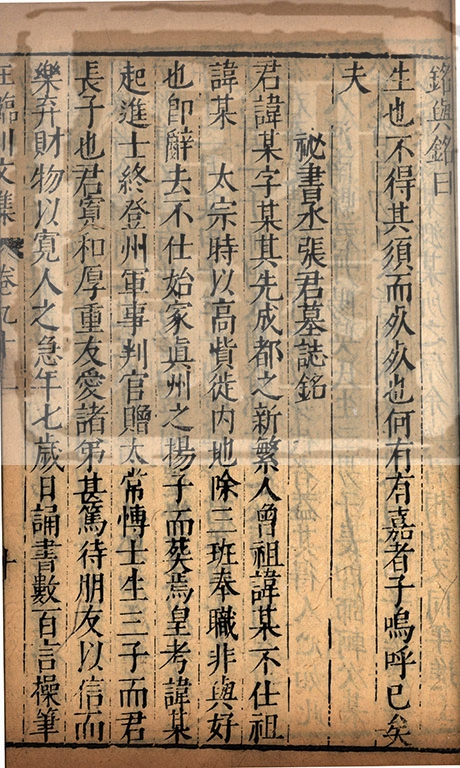 銘與銘曰
生也不得其須而死死也何有有嘉者子嗚呼已矣
夫
祕書丞張君墓誌銘
君諱某字某其先成都之新繁人曾祖諱某不仕祖
諱某 太宗時以高貲徙内地除三班奉職非與好
也卽辭去不仕始家眞州之揚子而葬焉皇考諱某
起進士終登州軍事判官贈太常愽士生三子而君
長子也君寬和厚重友愛諸弟甚篤待朋友以信而
樂弃財物以寛人之急年七歲日誦書數百言操筆
王臨川文集 卷九十二
十